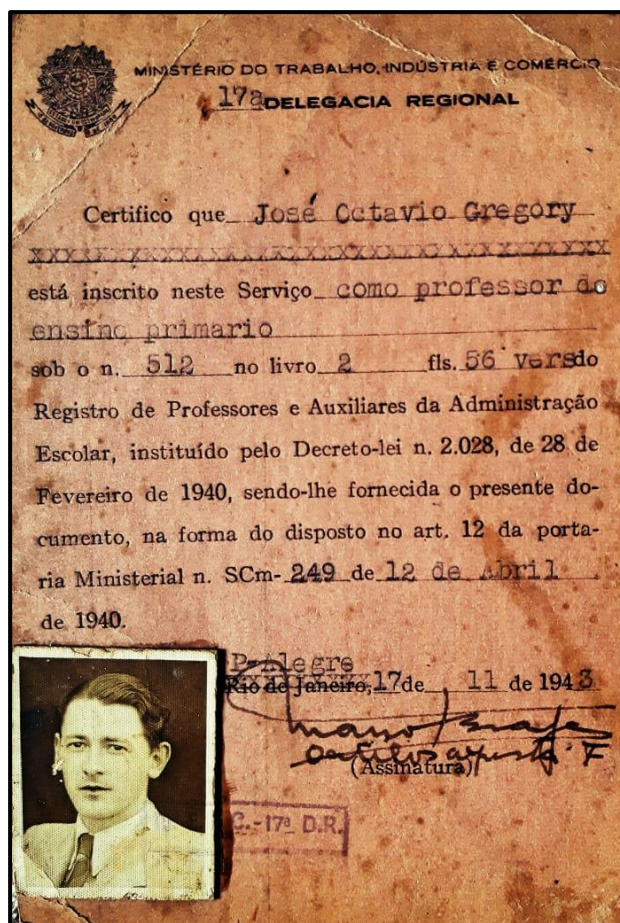 MINISTÉRIO DO TRABALHO, INDÚSTRIA E COMÉRCIO
17a DELEGACIA REGIONAL
Certifico que José Octavio Gregory
XXXXXXXXXXXXXXXXXXXXXXXXXXXXXXXXXXXX
está inscrito neste Serviço como professor do
ensino primario
sob o n. 512 no livro 2 fls. 56 verso do
Registro de Professores e Auxiliares da Administração
Escolar, instituído pelo Decreto-lei n. 2.028, de 28 de
Fevereiro de 1940, sendo-lhe fornecida o presente do-
cumento, na forma do disposto no art. 12 da porta-
ria Ministerial n. SCm- 249 de 12 de Abril
de 1940.
P. Alegre
Rio de Janeiro, 17 de 11 de 1943
(Assinatura)
C.-17ª D.R.